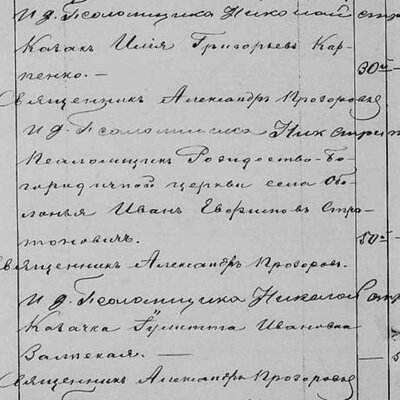 И д. Псаломщика Николай стр
Козакъ Илія Григорьевъ Кар-
пенко. — 30ти
Священникъ Александръ Прозоровъ
И д. Псаломщика Ник
Псаломщикъ Рождество-Бо-
городичной церкви села Обо-
лонья Иванъ Евфимовъ Стра-
тоновичъ. 50ти
Священникъ Александръ Прозоров.
И д. Псаломщика Николай
Козачка Гулитта Ивановна
—
Священникъ Александръ Прозоровъ